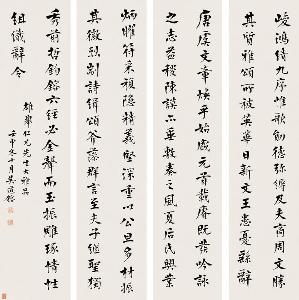 峻鴻績九序惟歌勛德弥縟及夫商周文勝
其質雅頌所被英華日新文王患憂繇辭
唐虞文章煥乎始盛元首載賡既發吟詠
之志益稷陳謨亦垂敷奏之風夏后氏興業
炳曜符采複隱精義堅深重以公旦多材振
其徽烈剬詩緝頌斧藻群言至夫子繼聖獨
秀前哲鈞鎔六經必金聲而玉振雕琢情性
組織辭令
仁兄先生大雅品
壬申冬十月吳